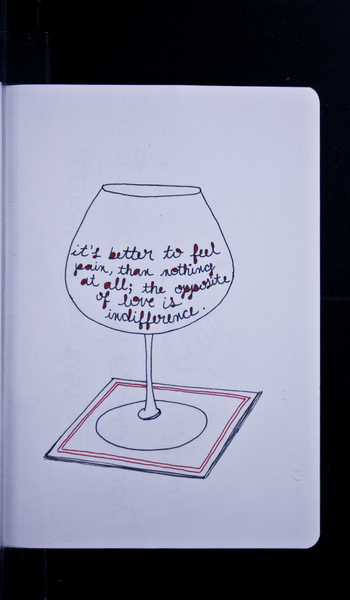 it's better to feel
pain, than nothing
at all; the opposite
of love is
indifference.